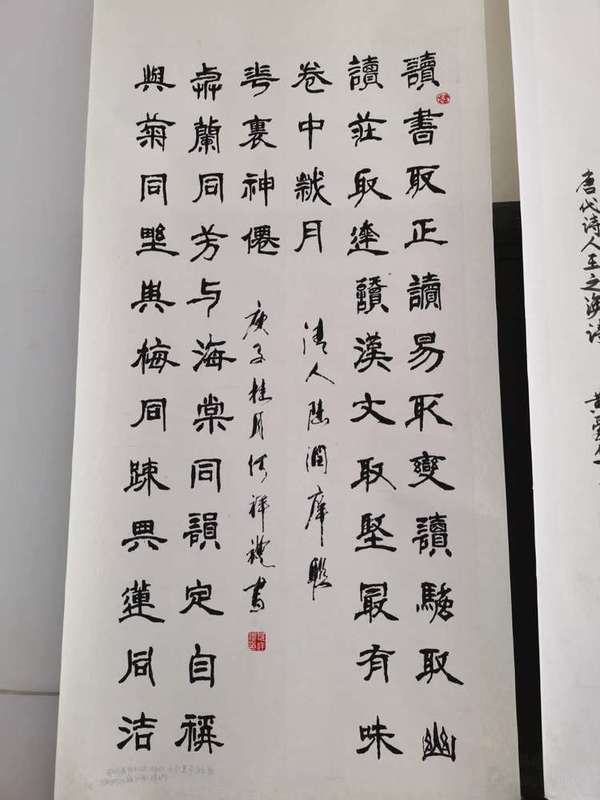 讀書取正讀易取變讀騷取幽
讀莊取達讀漢文取堅最有味
卷中歲月
清人陸潤庠聯
與菊同野與梅同疎與蓮同洁
與蘭同芳与海棠同韻定自稱
花裏神僊
庚子桂月祥禮書
唐代诗人王之涣诗